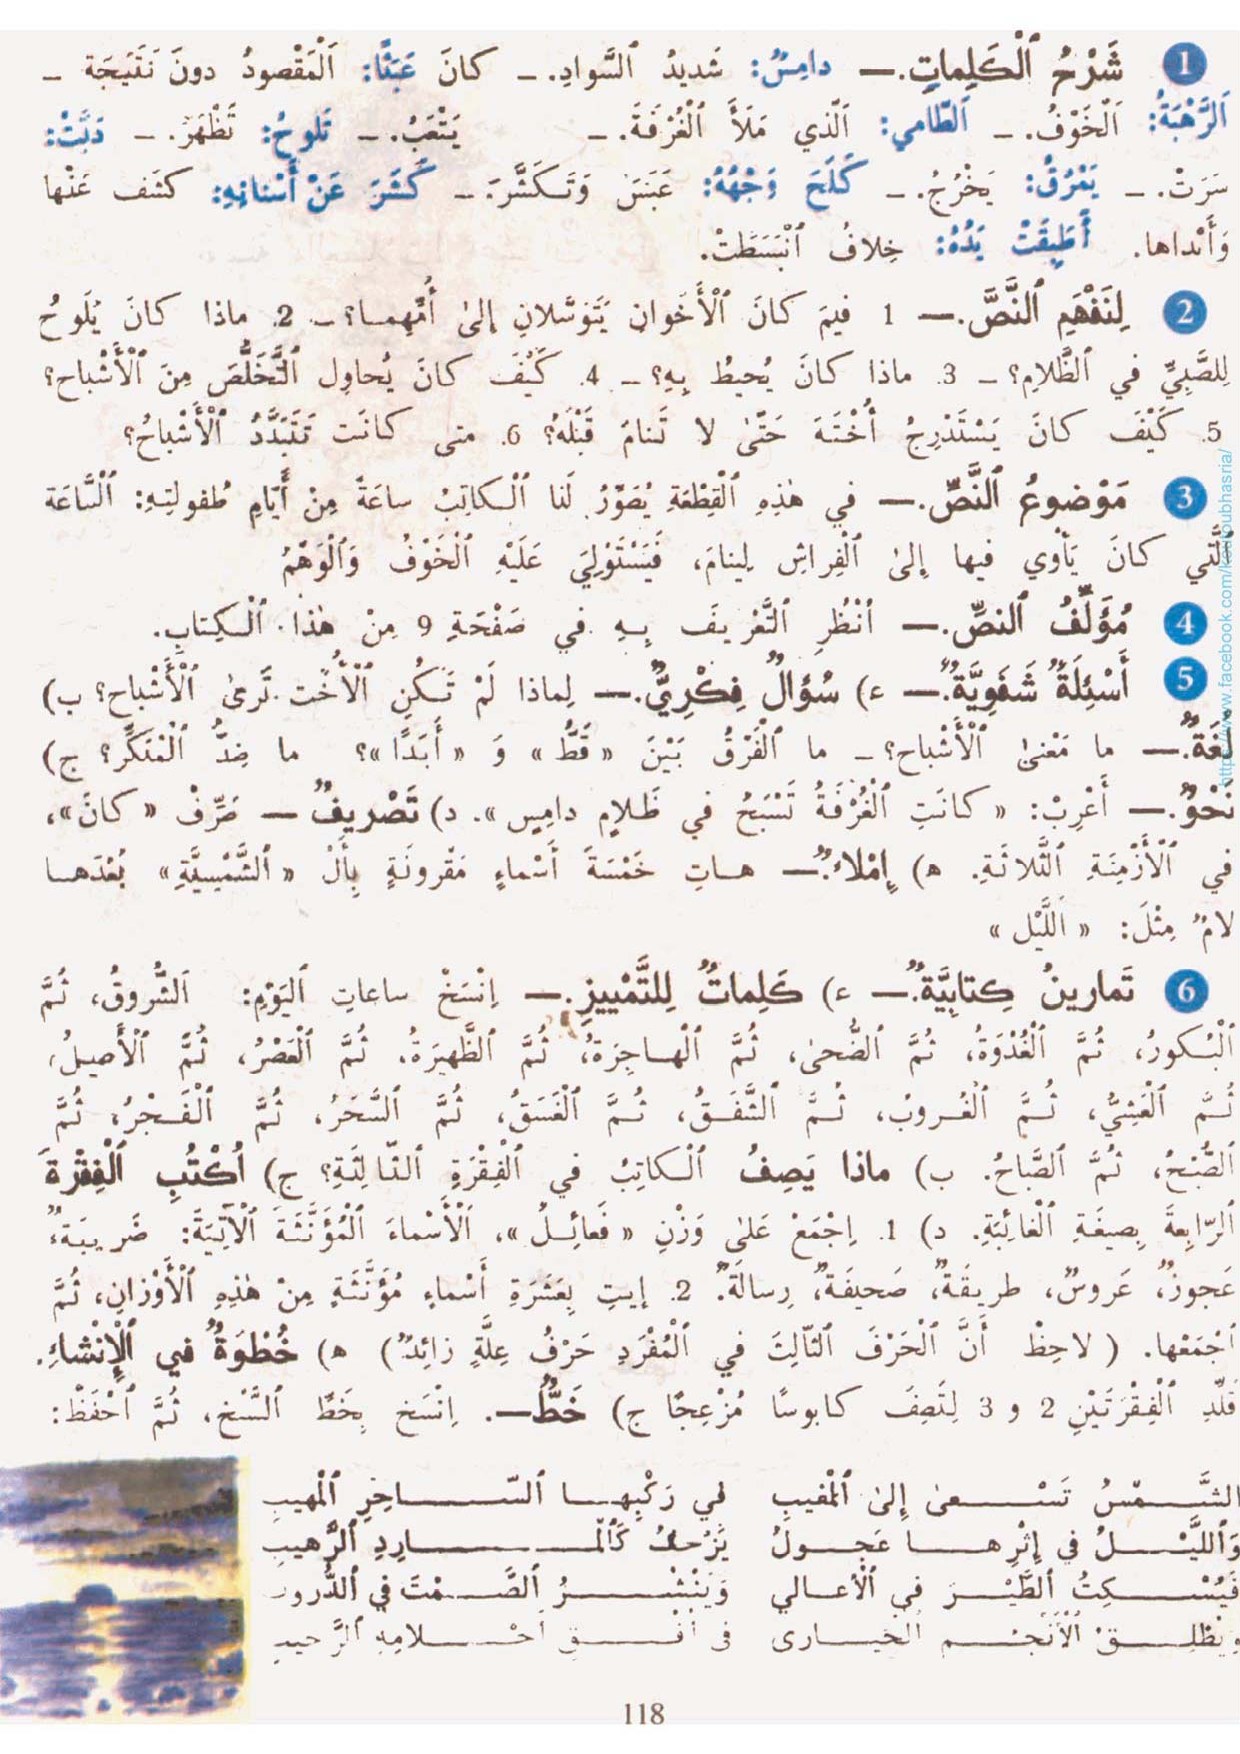 1 شَرْحُ ٱلْكَلِماتِ.— دامِسٌ: شَديدُ ٱلسَّوادِ. – كانَ عَبَثًا: اَلْمَقْصودُ دونَ نَتيجَة –
اَلرَّهْبَةُ: اَلْخَوْفُ. – اَلطّامي: اَلَّذي مَلَأَ ٱلْغُرْفَةَ. – يَتْعَبُ. – تَلوحُ: تَظْهَرُ. – دَبَّتْ:
سَرَتْ. – يَمْرُقُ: يَخْرُجُ. – كَلَحَ وَجْهُهُ: عَبَسَ وَتَكَشَّرَ. – كَشَرَ عَنْ أَسْنانِهِ: كشَف عَنْها
وَأَبْداها. أَطبِقَتْ يَدُهُ: خِلافُ ٱنْبَسَطَتْ.
2 لِنَفْهَمِ ٱلنَّصَّ.— 1 فيمَ كانَ ٱلْأَخَوانِ يَتَوَسَّلانِ إِلىٰ أُمِّهِما؟ – 2. ماذا كانَ يَلوحُ
لِلصَّبِيِّ في ٱلظَّلامِ؟ – 3. ماذا كانَ يُحيطُ بِهِ؟ – 4. كَيْفَ كانَ يُحاوِل ٱلتَّخَلُّصَ مِنَ ٱلْأَشْباح؟
5. كَيْفَ كانَ يَسْتَدْرِجُ أُخْتَهُ حَتّىٰ لا تَنامَ قَبْلَهُ؟ 6. متى كانَت تَتَبَدَّدُ ٱلْأَشْباحُ؟
3 مَوْضوعُ ٱلنَّصِّ.— في هٰذِهِ ٱلْقِطْعَةِ يُصَوِّرُ لَنا ٱلْكاتِبُ ساعَةً مِنْ أَيّامِ طُفولَتِهِ: ٱلسَّاعَة
ٱلَّتي كانَ يَأْوي فيها إِلىٰ ٱلْفِراشِ لِينامَ، فَيَسْتَوْلِيَ عَلَيْهِ ٱلْخَوْفُ وَٱلْوَهْمُ
4 مُؤَلِّفُ ٱلنصِّ.— اُنْظُرِ ٱلتَّعْريفَ بِهِ في صَفْحَةِ 9 مِنْ هٰذا ٱلْكِتابِ.
5 أَسْئِلَةٌ شَفَوِيَّةٌ.— ء) سُؤالٌ فِكْرِيٌّ.— لِماذا لَمْ تَكُنِ ٱلْأُخْت تَرىٰ ٱلْأَشْباح؟ ب)
لُغَةٌ.— ما مَعْنىٰ ٱلْأَشْباح؟ – ما ٱلْفَرْقُ بَيْنَ « قَطُّ » وَ « أَبَدًا »؟ ما ضِدُّ ٱلْمُنَكَّرِ؟ ج)
نَحْوٌ.— أَعْرِبْ: « كانَتِ ٱلْغُرْفَةُ تَسْبَحُ في ظَلامٍ دامِسٍ ». د) تَصْريفٌ — صَرِّفْ « كانَ »،
في ٱلْأَزْمِنَةِ ٱلثَّلاثَةِ. ه) إِمْلاءٌ.— هاتِ خَمْسَةَ أَسْماءٍ مَقْرونَةٍ بِأَلْ « ٱلشَّمْسِيَّةِ » بَعْدَها
لامٌ مِثْلَ: « اَللَّيْل »
6 تَمارينُ كِتابِيَّةٌ.— ء) كَلِماتٌ لِلتَّمْييزِ.— اِنْسَخْ ساعاتِ ٱليَوْمِ: اَلشُّروقُ، ثُمَّ
ٱلْبُكورُ، ثُمَّ ٱلْغُدْوَةُ، ثُمَّ ٱلضُّحىٰ، ثُمَّ ٱلْهاجِرَةُ، ثُمَّ ٱلظَّهيرَةُ، ثُمَّ ٱلْعَصْرُ، ثُمَّ ٱلْأَصيلُ،
ثُمَّ ٱلْعَشِيُّ، ثُمَّ ٱلْغُروبُ، ثُمَّ ٱلشَّفَقُ، ثُمَّ ٱلْغَسَقُ، ثُمَّ ٱلسَّحَرُ، ثُمَّ ٱلْفَجْرُ، ثُمَّ
ٱلصُّبْحُ، ثُمَّ ٱلصَّباحُ. ب) ماذا يَصِفُ ٱلْكاتِبُ في ٱلْفِقْرَةِ ٱلثّالِثَةِ؟ ج) اُكْتُبِ ٱلْفِقْرَةَ
ٱلرّابِعَةَ بِصيغَةِ ٱلْغائِبَةِ. د) 1. اِجْمَعْ عَلىٰ وَزْنِ « فَعائِلُ »، اَلْأَسْماءَ ٱلْمُؤَنَّثَةَ ٱلْآتِيَةَ: ضَريبَةٌ،
عَجوزٌ، عَروسٌ، طريقَةٌ، صَحيفَةٌ، رِسالَةٌ. 2. إيتِ بِعَشَرَةِ أَسْماءٍ مُؤَنَّثَةٍ مِنْ هٰذِهِ ٱلْأَوْزانِ، ثُمَّ
ٱجْمَعْها. ( لاحِظْ أَنَّ ٱلْحَرْفَ ٱلثّالِثَ في ٱلْمُفْرَدِ حَرْفُ عِلَّةٍ زائِدٌ ) ه) خُطْوَةٌ في ٱلْإِنْشاءِ.
قَلِّدِ ٱلْفِقْرَتَيْنِ 2 و 3 لِتَصِفَ كابوسًا مُزْعِجًا ج) خَطٌّ—. اِنْسَخ بِخَطِّ ٱلنَّسْخ، ثُمَّ ٱحْفَظْ:
ٱلشَّمْسُ تَسْعىٰ إِلىٰ ٱلْمَغيبِ في رَكْبِها ٱلسّاخِرِ ٱلْمَهيبِ
وَٱللَّيْلُ في إِثْرِها عَجولُ يَزْحَفُ كَٱلْمارِدِ ٱلرَّهيبِ
فَيُسْكِتُ ٱلطَّيْرَ في ٱلْأَعالي وَيَنْشُرُ ٱلصَّمْتَ في ٱلدُّروبِ
وَيُطْلِقُ ٱلْأَنْجُمَ ٱلْحَيارى في أُفْقِ أَحْلامِهِ ٱلرَّحيبِ
118